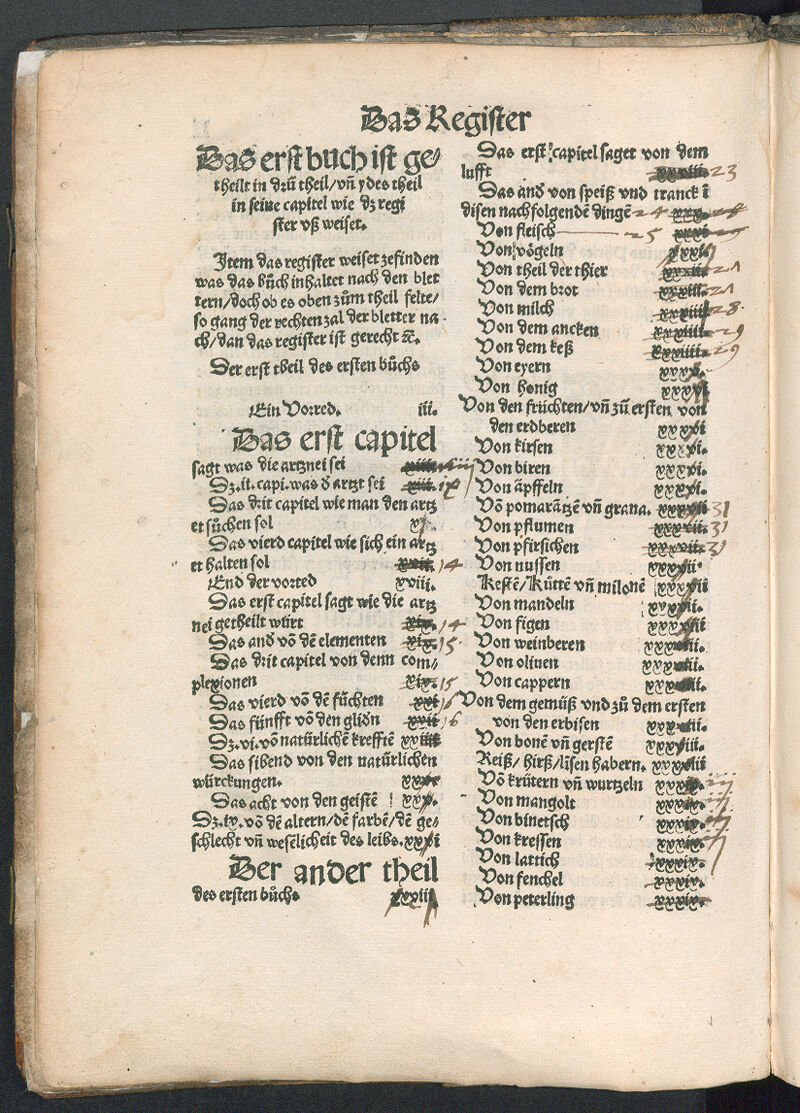 Das Register
Das erst buch ist ge⸗
theilt in drü theil/vñ ydes theil
in seine capitel wie dz regi
ster vß weiset.
Item das register weiset zefinden
was das bůch inhaltet nach den blet
tern/doch ob es oben zům theil felte/
so gang der rechten zal der bletter na
ch/dan das register ist gerecht ꝛc.
Der erst theil des ersten bůchs
Ein Vorred. iii.
Das erst capitel
sagt was die artznei sei
Dz.ii.capi.was d̄ artzt sei
Das drit capitel wie man den artz
et sůchen sol
Das vierd capitel wie sich ein artz
et halten sol 14
End der vorred xviii.
Das erst capitel sagt wie die artz
nei getheilt würt xix. 14
Das and̄ võ dē elementen xix. 15
Das drit capitel von denn com⸗
plexionen xix. 15
Das vierd võ dē füchten xxi 16
Das fünfft võ den glidn xxii 16
Dz.vi.võ natürlichē krefftē
Das sibend von den natürlichen
würckungen.
Das acht von den geistē
Dz.ix.võ dē altern/dē farbē/dē ge⸗
schlecht vñ wesēlicheit des leibs.
Der ander theil
des ersten bůchs
Das erst capitel saget von dem
lufft 23
Das and̄ von speiß vnd tranck ī
disen nachfolgendē dingē 24
Von fleisch 25
Von vögeln
Von theil der thier
Von dem brot
Von milch 28
Von dem ancken 29
Von dem keß 29
Von eyern
Von honig
Von den früchten/vñ zů ersten von
den erdberen
Von kirsen
Von biren
Von äpffeln
Võ pomarātzē vñ grana. 31
Von pflumen 31
Von pfirsichen 31
Von nussen
Kestē/Küttē vñ milonē
Von mandeln
Von figen
Von weinberen
Von oliuen
Von cappern
Von dem gemüß vnd zů dem ersten
von den erbisen
Von bonē vñ gerstē
Reiß/hirß/lisen habern.
Võ krütern vñ wurtzeln
Von mangolt
Von binetsch
Von kressen
Von lattich
Von fenchel xxxix.
Von peterling xxxix.